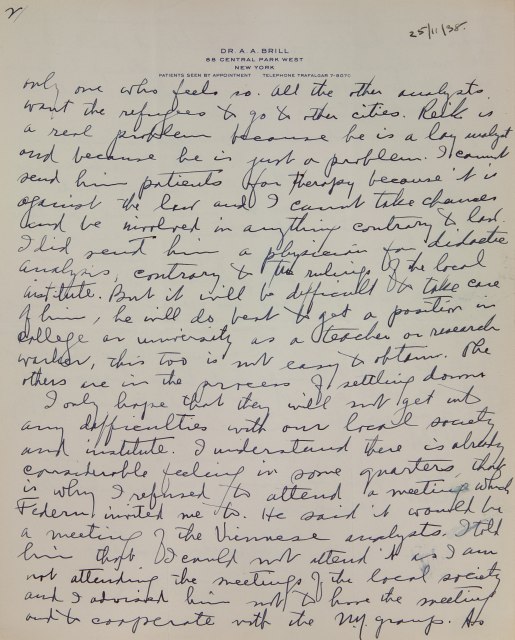 2/
25/11/38.
DR A. A. BRILL
88 CENTRAL PARK WEST
NEW YORK
PATIENTS SEEN BY APPOINTMENT TELEPHONE TRAFALGAR 7-8070
only one who feels so. All the other analysts
want the refugees to go to other cities. Reik is
a real problem because he is a lay analyst
and because he is just a problem. I cannot
send him patients for therapy because it is
against the law and I cannot take chances
and be involved in anything contrary to law.
I did send him a physician for didactic
analysis, contrary to the rulings of the local
institute. But it will be difficult to take care
of him, he will do best to get a position in
college or university as a teacher or research
worker, this too is not easy to obtain. The
others are in the process of settling down
I only hope that they will not get into
any difficulties with our local society
and institute. I understand there is already
considerable feeling in some quarters, that
is why I refused to attend a meeting which
Federn invited me to. He said it would be
a meeting of the Viennese analysts. I told
him that I could not attend it as I am
not attending the meetings of the local society
and I advised him not to have the meeting
and to cooperate with the N.Y. group. As